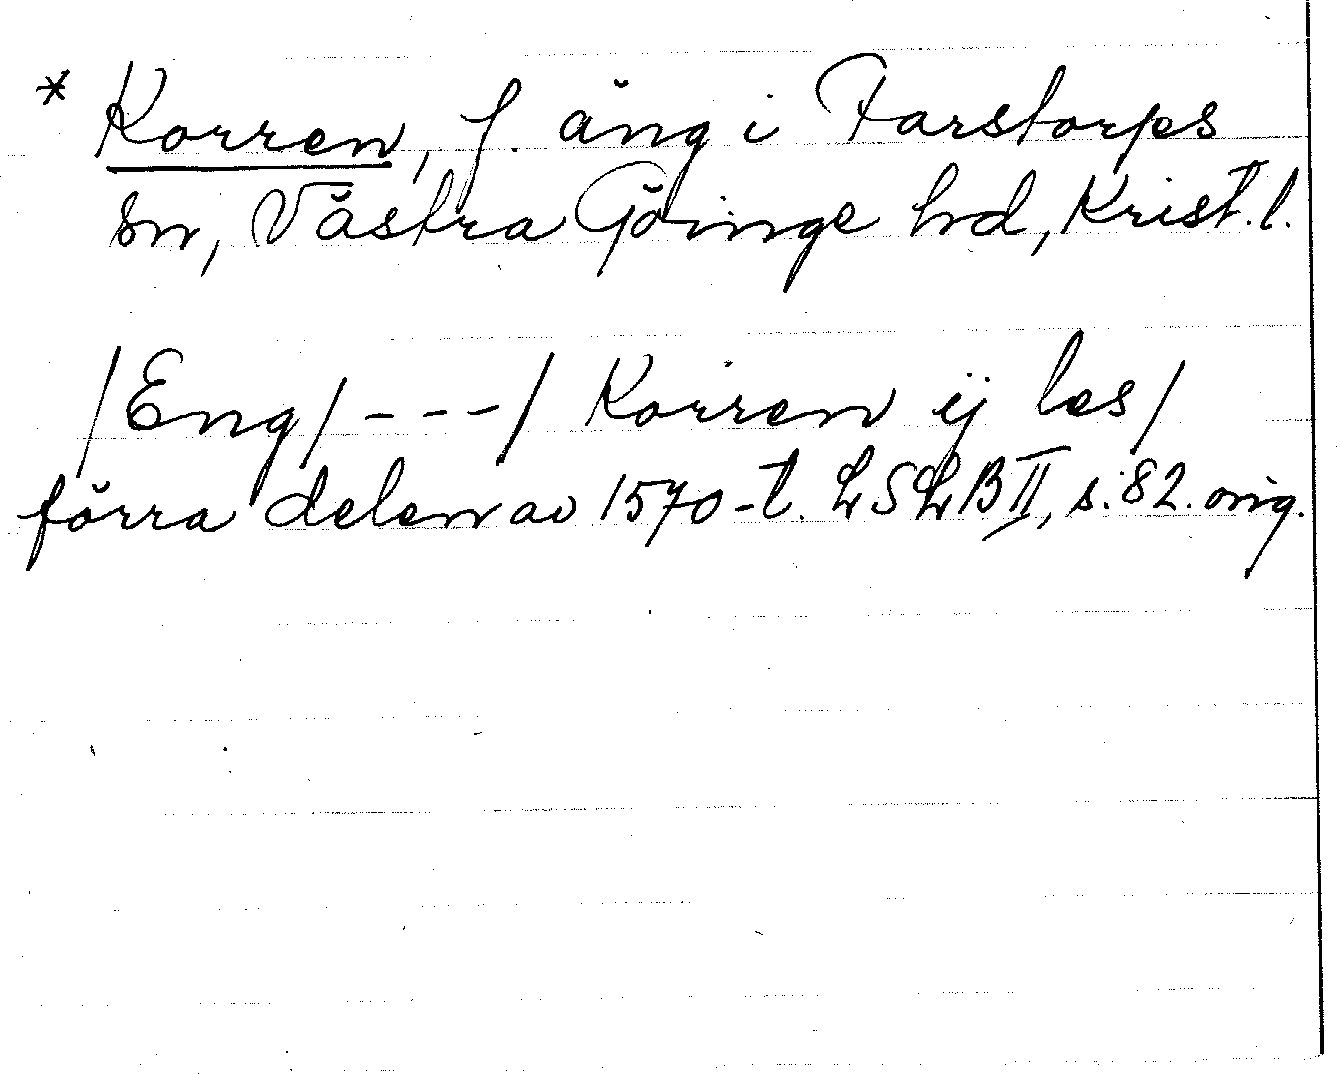 * Korren, f. äng i Farstorps
sn, Västra Göinge hd, Krist. l.
/Eng/ - - - / Korren ij les/
förra delen av 1570-t. LSLB II, s. 82. orig.